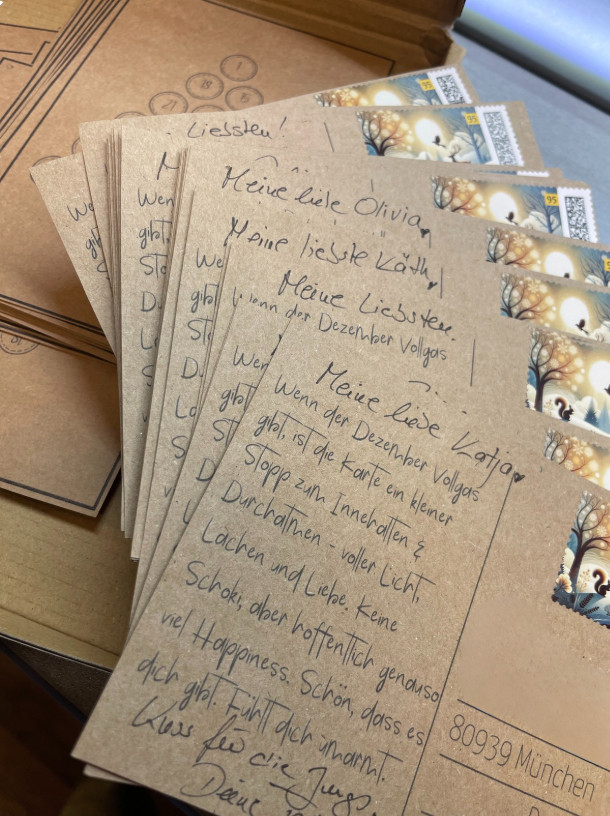 Liebsten!
Meine liebe Olivia
Meine liebste Käth
Meine Liebsten.
Wenn der Dezember Vollgas
Meine liebe Katja
Wenn der Dezember Vollgas
gibt, ist die Karte ein kleiner
Stopp zum Innehalten &
Durchatmen - voller Licht,
Lachen und Liebe. Keine
Schoki, aber hoffentlich genauso
viel Happiness. Schön, dass es
dich gibt. Fühlt dich umarmt.
Kuss für die Jungs
Deine
80939 München
95
95
95